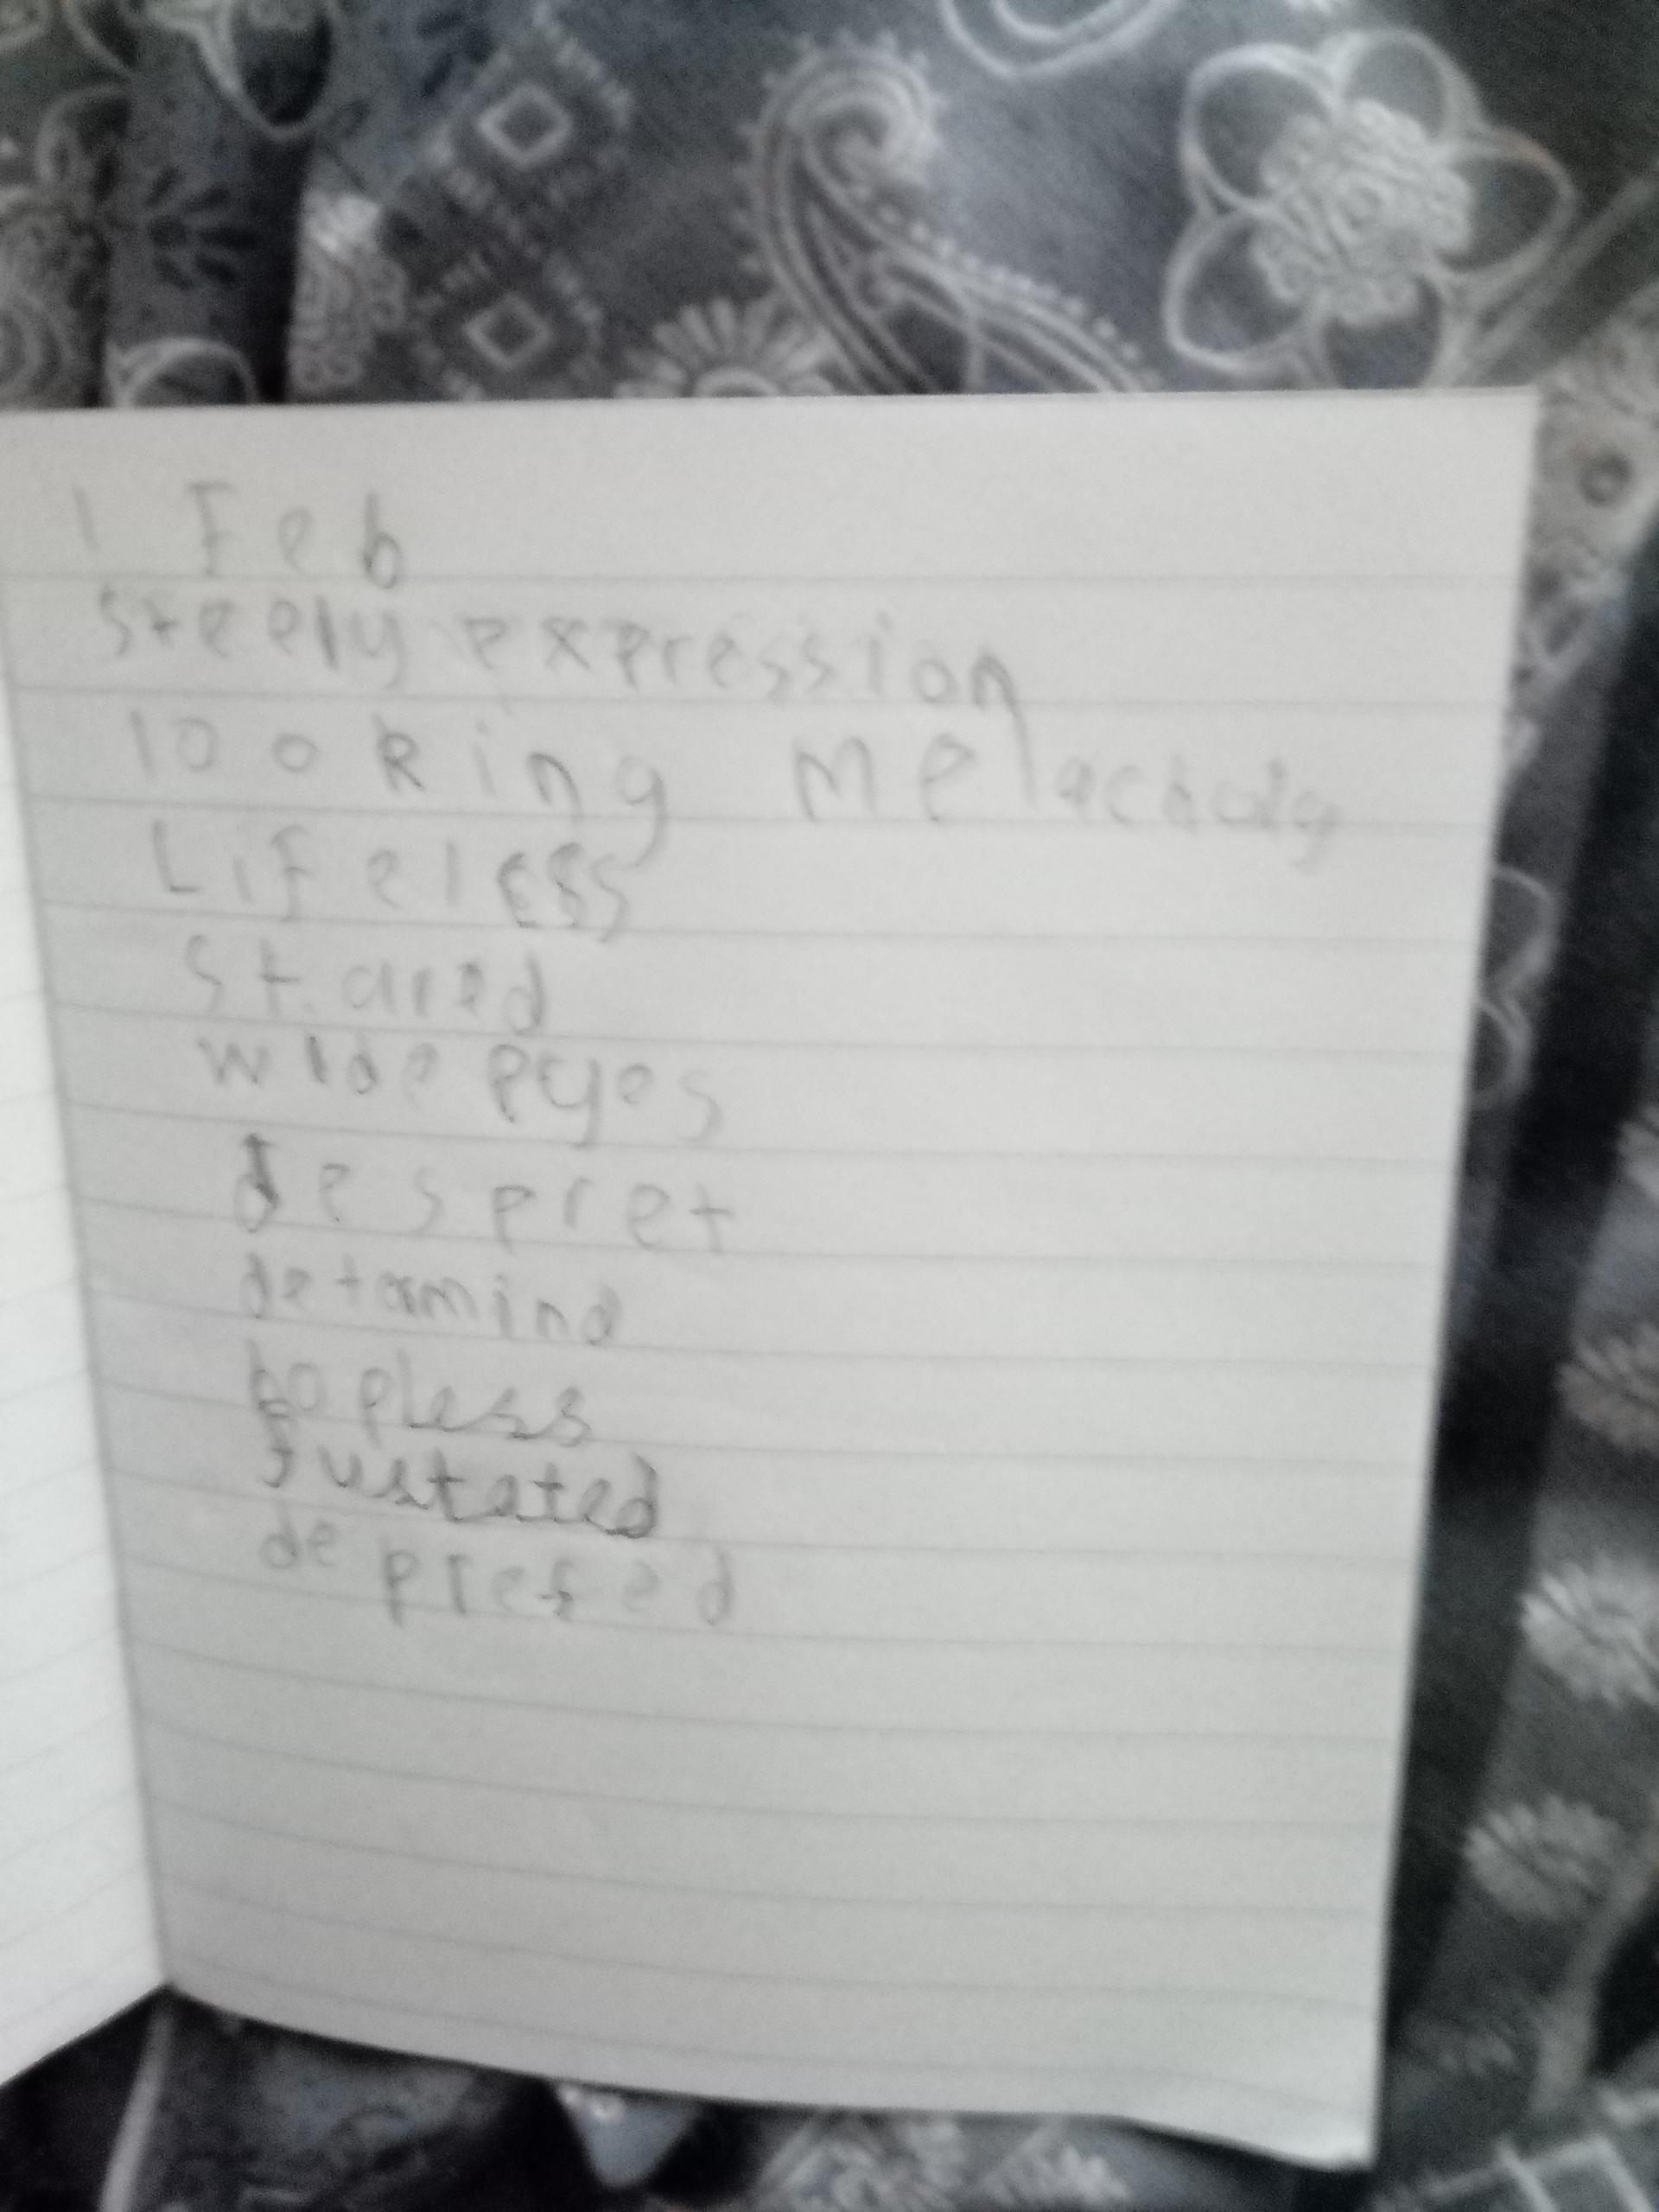 1 Feb
Steely expression
looking Melacholy
Lifeless
Stared
wide eyes
despret
detamind
hopless
fustated
depresed